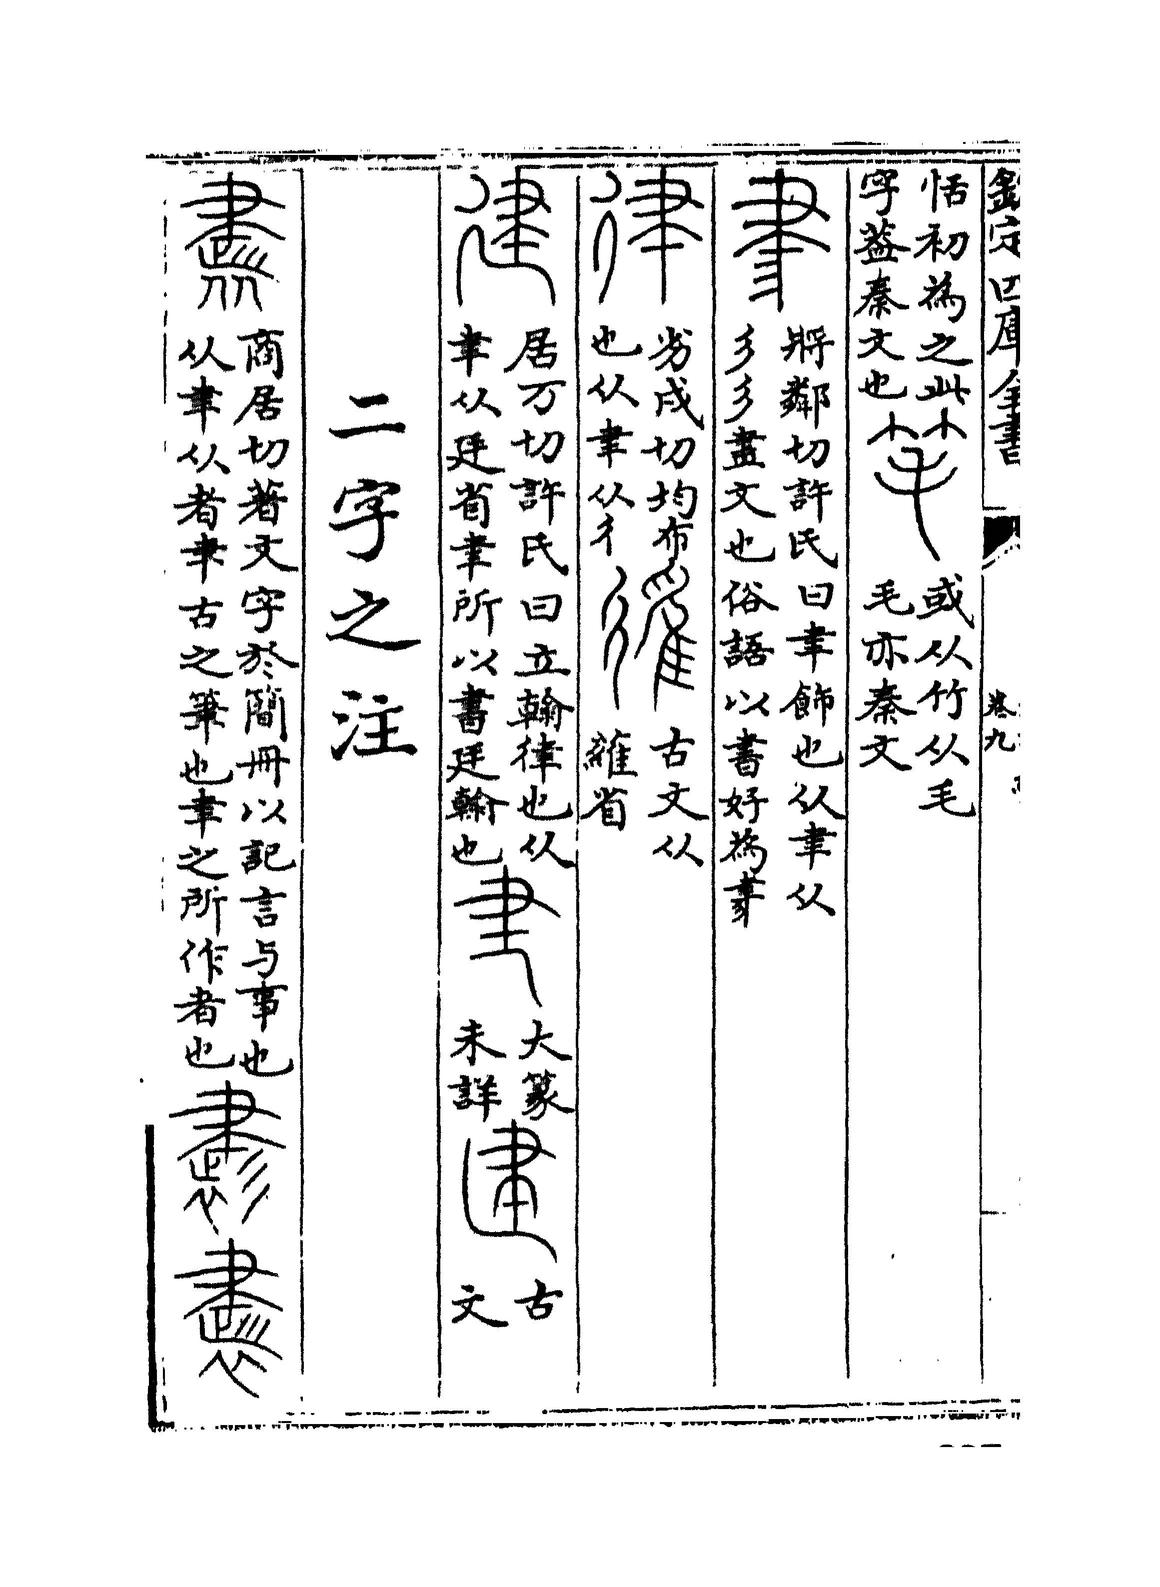 欽定四庫全書 卷九
恬初為之此
字蓋秦文也
或从竹从毛
毛亦秦文
將鄰切許氏曰聿飾也从聿从
彡彡畫文也俗語以書好為𦘔
律
劣戌切均布
也从聿从彳
古文从
省
建
居万切許氏曰立翰律也从
聿从廷省聿所以書廷翰也
大篆
未詳
古
文
二字之注
書
商居切著文字於簡冊以記言与事也
从聿从者聿古之筆也聿之所作者也